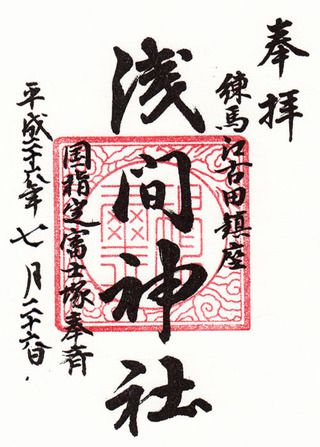 奉拝
練馬江古田鎮座
浅間神社
国指定富士塚奉斉
平成二十六年七月二十六日